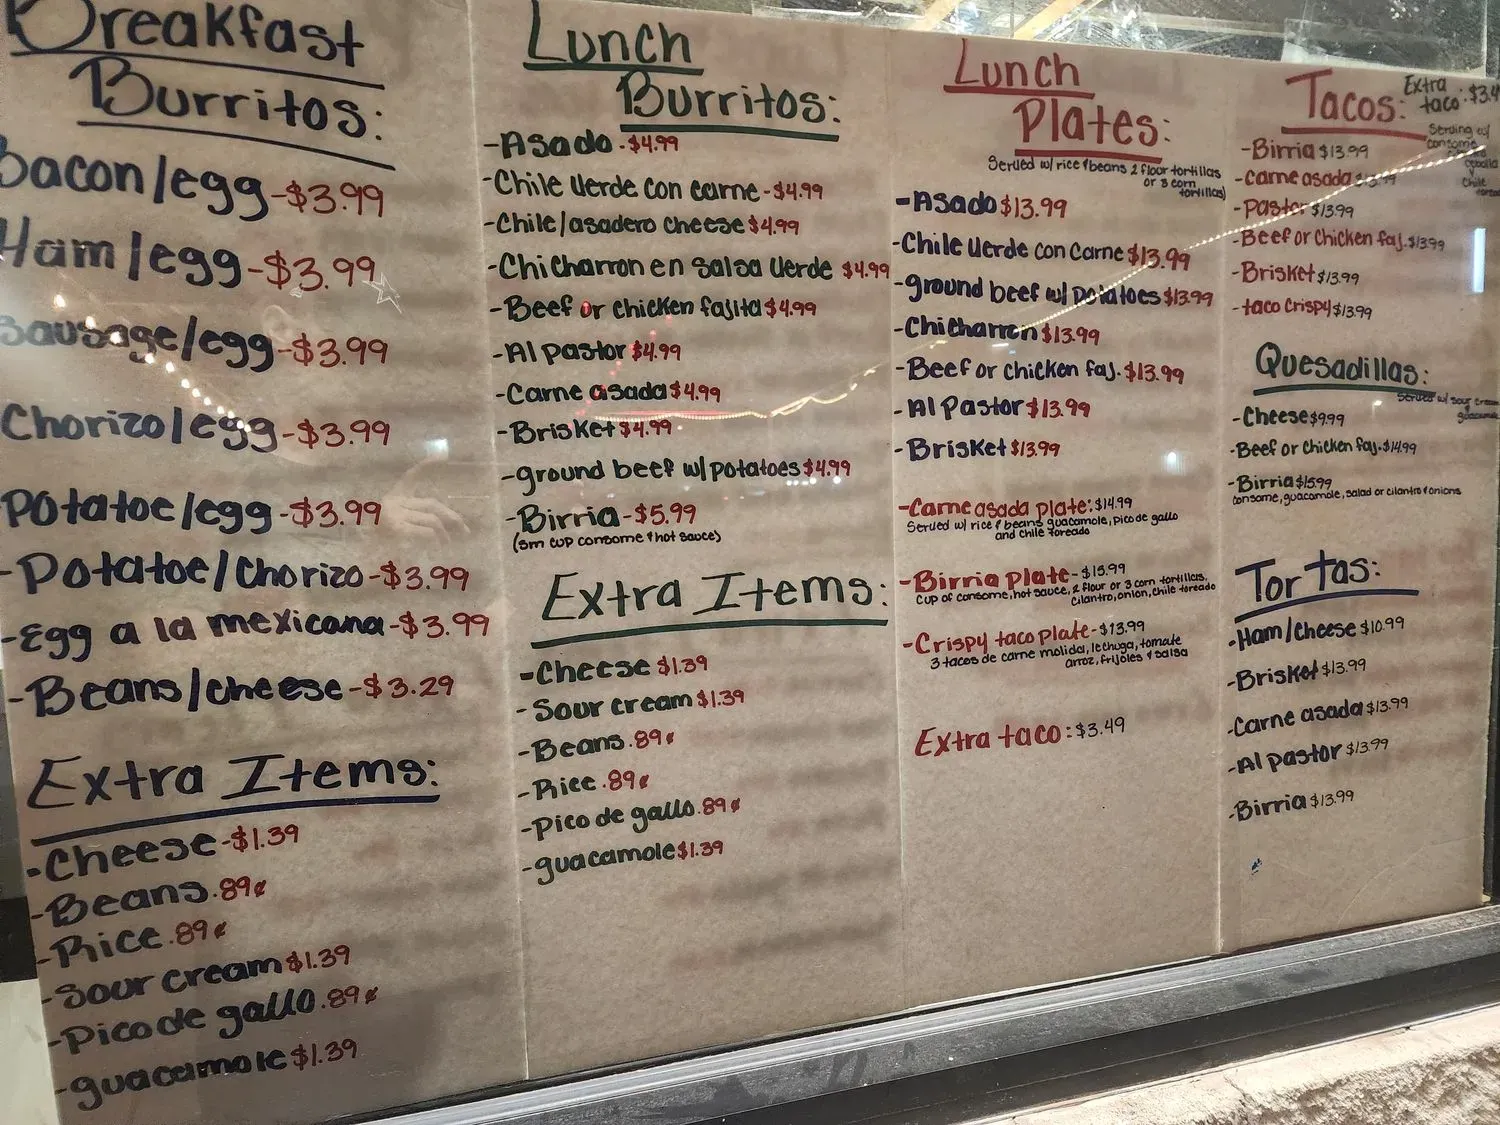 Breakfast
Burritos:
Bacon/egg-$3.99
Ham/egg-$3.99
Sausage/egg-$3.99
Chorizo/egg-$3.99
Potatoe/egg-$3.99
-Potatoe/Chorizo-$3.99
-Egg a la mexicana-$3.99
-Beans/cheese-$3.29
Extra Items:
-Cheese-$1.39
-Beans.89¢
-Rice.89¢
-Sour cream $1.39
-Pico de gallo.89¢
-guacamole $1.39
Lunch
Burritos:
-Asado-$4.99
-Chile Verde con carne-$4.99
-Chile/asadero cheese $4.99
-Chicharron en salsa Verde $4.99
-Beef or chicken fajita $4.99
-Al pastor $4.99
-Carne asada $4.99
-Brisket $4.99
-ground beef w/potatoes $4.99
-Birria-$5.99
(sm cup consome & hot sauce)
Extra Items:
-Cheese $1.39
-Sour cream $1.39
-Beans.89¢
-Rice.89¢
-Pico de gallo.89¢
-guacamole $1.39
Lunch
Plates:
Served w/ rice & beans 2 flour tortillas
or 3 corn
tortillas)
-Asado $13.99
-Chile Verde con Carne $13.99
-ground beef w/ potatoes $13.99
-Chicharron $13.99
-Beef or chicken faj. $13.99
-Al Pastor $13.99
-Brisket $13.99
-Carne asada plate: $14.99
Served w/ rice & beans guacamole, pico de gallo
and chile toreado
-Birria plate-$15.99
cup of consome, hot sauce, 2 flour or 3 corn tortillas,
cilantro, onion, chile toreado
-Crispy taco plate-$13.99
3 tacos de carne molida, lechuga, tomate
arroz, frijoles & salsa
Extra taco: $3.49
Tacos:
Extra
taco: $3.4
Serving w/
consome
cebolla
y
Chile
toreado
-Birria $13.99
-Carne asada $13.99
-Pastor $13.99
-Beef or Chicken faj. $13.99
-Brisket $13.99
-taco Crispy $13.99
Quesadillas:
Served w/ sour cream
guacamole
-Cheese $9.99
-Beef or Chicken faj. $14.99
-Birria $15.99
consome, guacamole, salad or cilantro & onions
Tortas:
-Ham/Cheese $10.99
-Brisket $13.99
-Carne asada $13.99
-Al pastor $13.99
-Birria $13.99